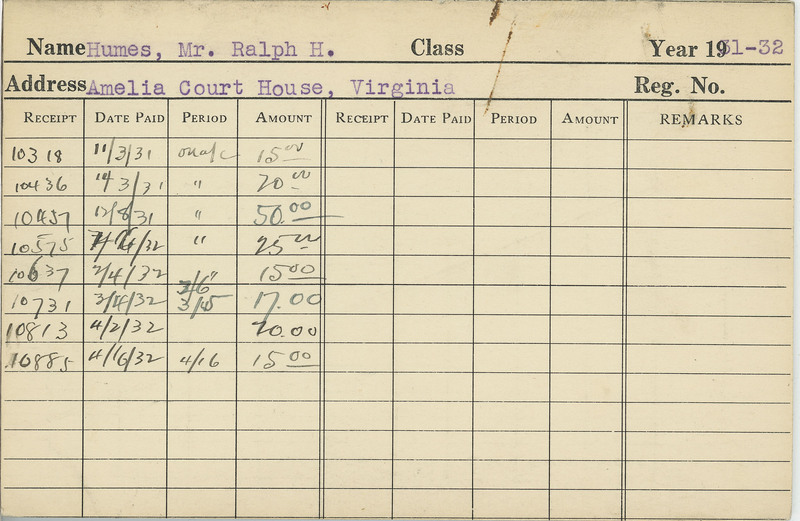 Name Humes, Mr. Ralph H. Class Year 1931-32
Address Amelia Court House, Virginia Reg. No.
RECEIPT DATE PAID PERIOD AMOUNT RECEIPT DATE PAID PERIOD AMOUNT REMARKS
10318 11/3/31 on a/c 15.00
10436 3/31 " 20.00
10457 12/8/31 " 50.00
10575 /32 " 25.00
10637 2/4/32 " 15.00
10731 3/4/32 3/15 17.00
10813 4/2/32 20.00
10885 4/16/32 4/16 15.00